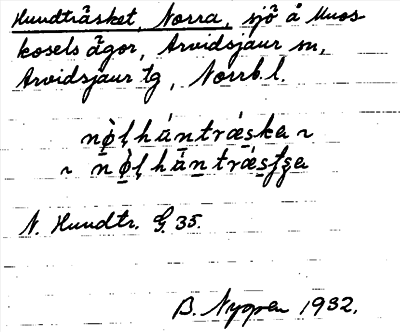 Hundträsket, Norra, sjö å Muos
kosels ägor, Arvidsjaur sn,
Arvidsjaur tg, Norrb. l.
nø̀ḷhántrǽska ~
~ nø̀ḷhántrǽsʃʒa
N. Hundtr. G. 35.
B. Nyppen 1932.